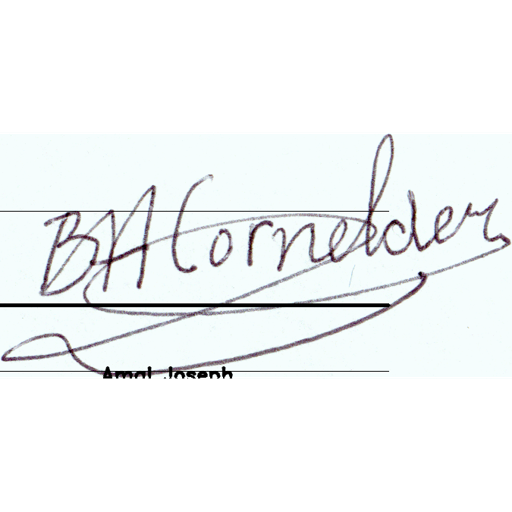 BA Cornelder
Amal Joseph